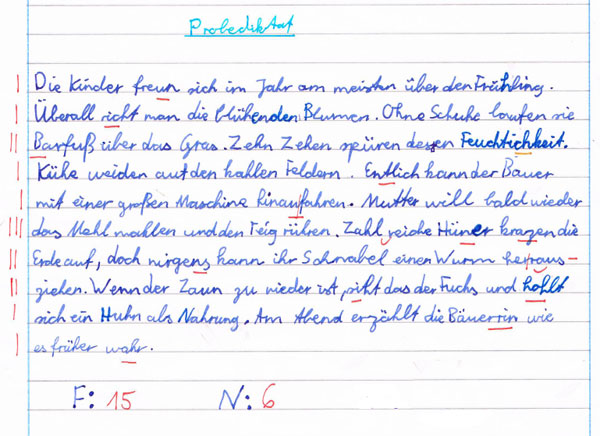 Probediktat
Die Kinder freun sich im Jahr am meisten über den Frühling.
Überall richt man die blühenden Blumen. Ohne Schuhe laufen sie
Barfuß über das Gras. Zehn Zehen spüren dessen Feuchtichkeit.
Kühe weiden auf den kahlen Feldern. Entlich kann der Bauer
mit einer großen Maschine hinauffahren. Mutter will bald wieder
das Mehl mahlen und den Teig rühren. Zahl reiche Hüner kragen die
Erde auf, doch nirgens kann ihr Schnabel einen Wurm herraus-
ziehen. Wenn der Zaun zu nieder ist, siht das der Fuchs und hohlt
sich ein Huhn als Nahrung. Am Abend erzählt die Bäuerrin wie
es früher wahr.
F: 15 N: 6